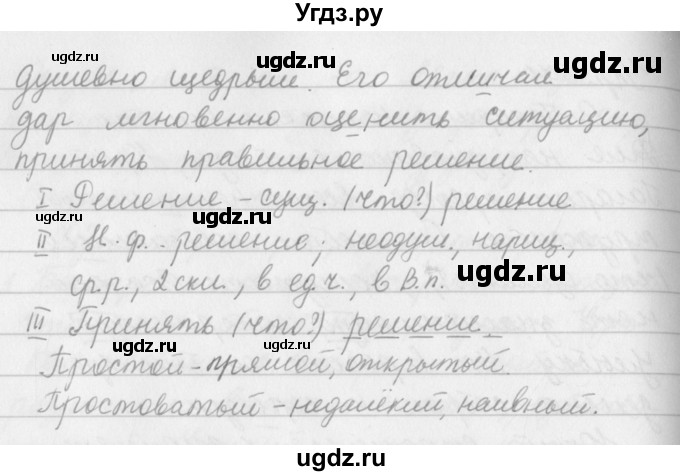 Угдз.ру
душевно щедрым. Его отличал
дар мгновенно оценить ситуацию,
принять правильное решение.
I Решение – сущ. (что?) решение
II Н.ф. – решение, неодуш., нариц.,
ср.р., 2 скл., в ед.ч., в В.п.
III Принять (что?) решение.
Простой – прямой, открытый.
Простоватый – недалёкий, наивный.
ugdz.ru
ugdz.ru
ugdz.ru
ugdz.ru
ugdz.ru
ugdz.ru
ugdz.ru
ugdz.ru
ugdz.ru
ugdz.ru
ugdz.ru